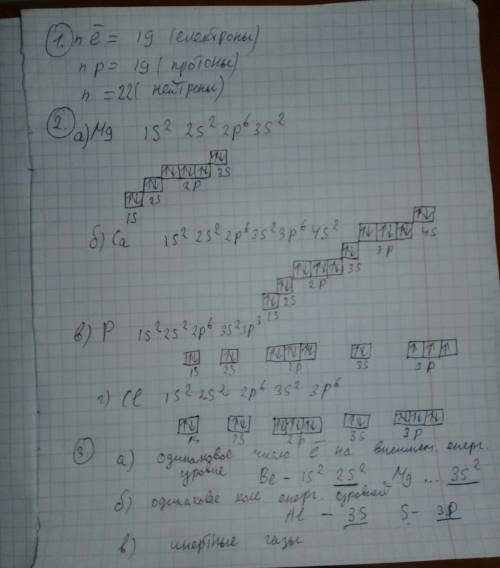 1. n ē = 19 (електроны)
n p = 19 (протоны)
n = 22 (нейтроны)
2. а) Mg 1S² 2S² 2p⁶ 3S²
1S 2S 2p 3S
б) Ca 1S² 2S² 2p⁶ 3S² 3p⁶ 4S²
1S 2S 2p 3S 3p 4S
в) P 1S² 2S² 2p⁶ 3S² 3p³
1S 2S 2p 3S 3p
г) Cl 1S² 2S² 2p⁶ 3S² 3p⁶
1S 2S 2p 3S 3p
3 а) одинаковое число ē на внешнем энерг.
уровне Be - 1S² 2S² Mg ... 3S²
б) одинаковое кол энерг. уровней
Al - 3S S - 3p
в) инертные газы